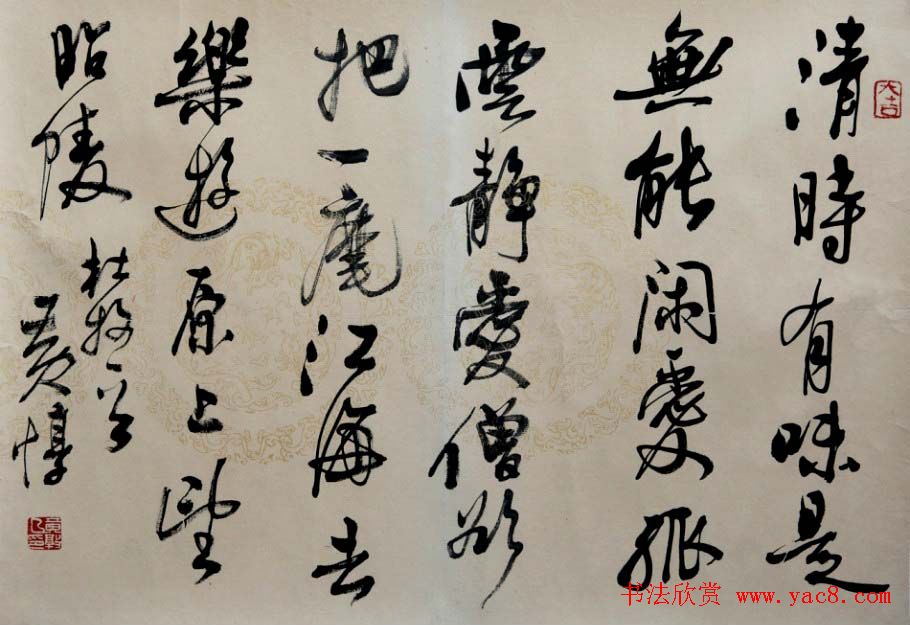 清時有味是
無能閑愛孤
雲靜愛僧欲
把一麾江海去
樂遊原上望
昭陵
杜牧之
黃惇
书法欣赏 www.yac8.com